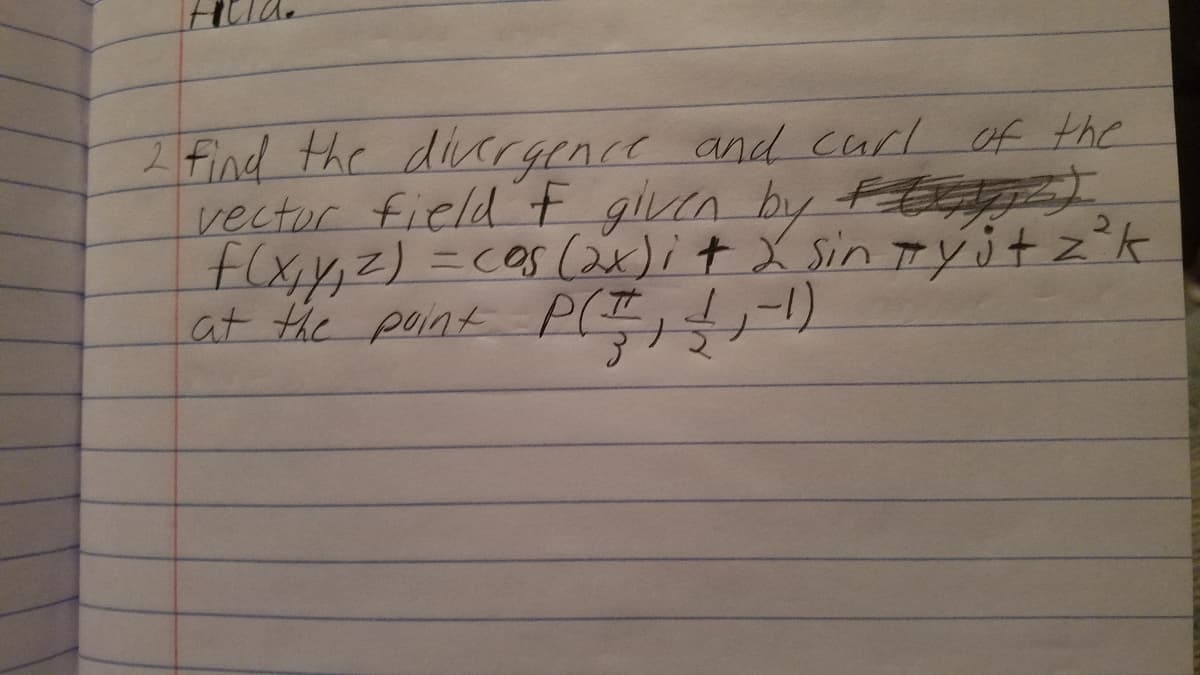 2 Find the divergence and curl of the
vector field F given by
f(x,y,z) = cos(2x)i + 2 sin πyj + z²k
at the point P(π/3, 1/2, -1)